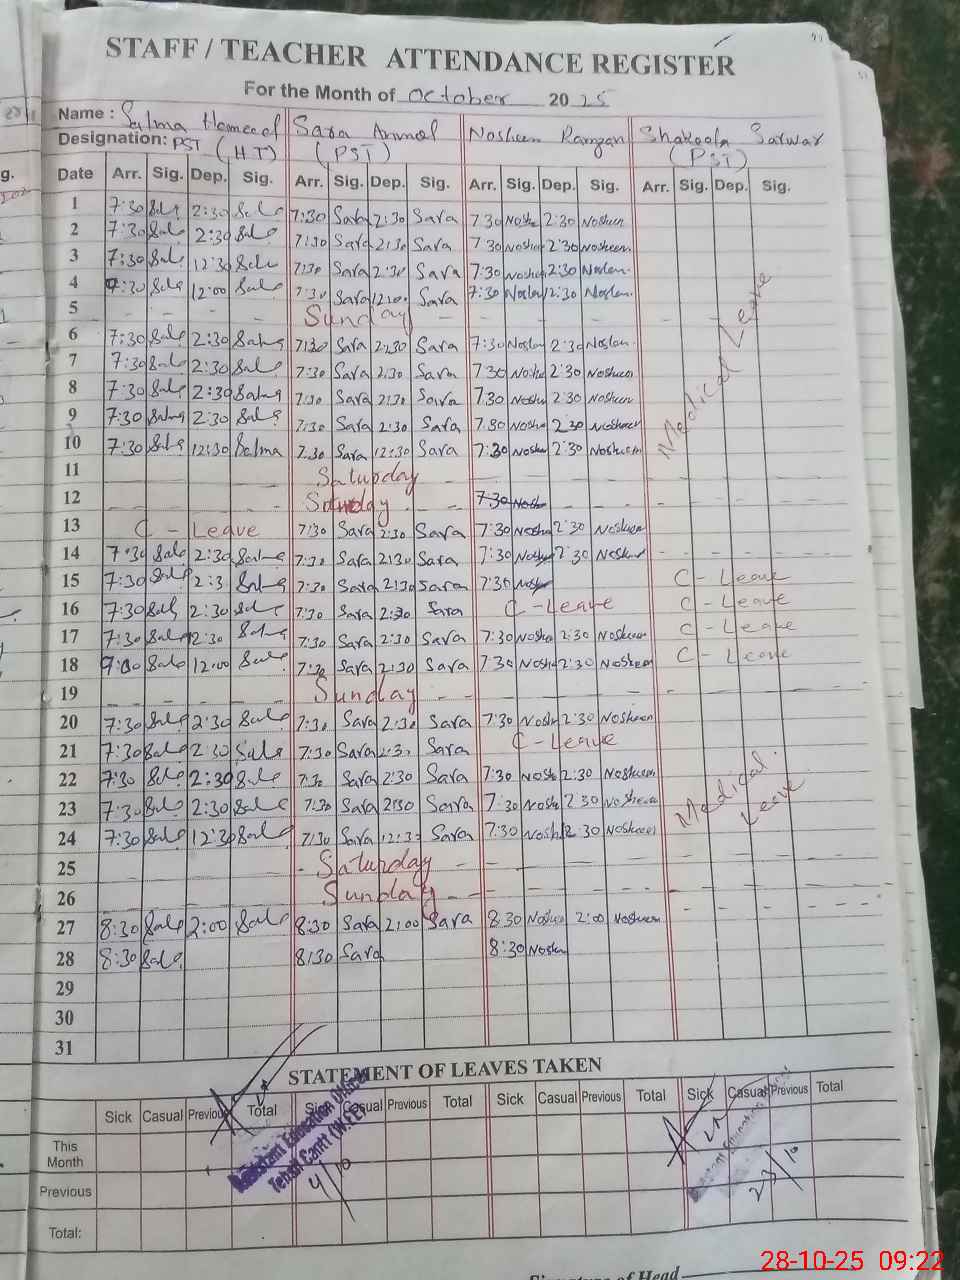 STAFF / TEACHER ATTENDANCE REGISTER
For the Month of October 2025
Name : Salma Hameed Sara Anmol Nosheen Ramzan Shakeela Sarwar
Designation: PST (HT) (PST) (PST)
Date Arr. Sig. Dep. Sig. Arr. Sig. Dep. Sig. Arr. Sig. Dep. Sig. Arr. Sig. Dep. Sig.
1 7:30 Sale 2:30 Sale 7:30 Sara 2:30 Sara 7:30 Noshe 2:30 Nosheen
2 7:30 Sale 2:30 Sale 7:30 Sara 2:30 Sara 7:30 Noshe 2:30 Nosheen
3 7:30 Sale 12:30 Sale 7:30 Sara 2:30 Sara 7:30 Noshe 2:30 Noslen
4 7:30 Sale 12:00 Sale 7:30 Sara 12:00 Sara 7:30 Noslen 2:30 Noslen
Medical Leave
5 Sunday
6 7:30 Sale 2:30 Salma 7:30 Sara 2:30 Sara 7:30 Noslen 2:30 Noslen
7 7:30 Sale 2:30 Sale 7:30 Sara 2:30 Sara 7:30 Noshe 2:30 Nosheen
8 7:30 Sale 2:30 Salma 7:30 Sara 2:30 Sara 7:30 Noshe 2:30 Nosheen
9 7:30 Salma 2:30 Sale 7:30 Sara 2:30 Sara 7:30 Noshe 2:30 Nosheen
10 7:30 Sale 12:30 Salma 7:30 Sara 12:30 Sara 7:30 Noshe 2:30 Nosheen
11 Saturday
12 Sunday 7:30 Noshe
13 C - Leave 7:30 Sara 2:30 Sara 7:30 Noshe 2:30 Nosheen
14 7:30 Sale 2:30 Salma 7:30 Sara 2:30 Sara 7:30 Noshe 2:30 Nosheen
15 7:30 Sale 2:3 Salma 7:30 Sara 2:30 Sara 7:30 Noshe C - Leave
16 7:30 Sale 2:30 Sale 7:30 Sara 2:30 Sara C - Leave C - Leave
17 7:30 Sale 2:30 Salma 7:30 Sara 2:30 Sara 7:30 Nosha 2:30 Nosheen C - Leave
18 7:00 Sale 12:00 Sale 7:30 Sara 2:30 Sara 7:30 Nosha 2:30 Nosheen C - Leave
19 Sunday
20 7:30 Sale 2:30 Sale 7:30 Sara 2:30 Sara 7:30 Nosh 2:30 Nosheen
21 7:30 Sale 2:30 Sale 7:30 Sara 2:30 Sara C - Leave
22 7:30 Sale 2:30 Sale 7:30 Sara 2:30 Sara 7:30 Nosh 2:30 Nosheen
Medical Leave
23 7:30 Sale 2:30 Sale 7:30 Sara 2:30 Sara 7:30 Nosh 2:30 Nosheen
24 7:30 Sale 12:30 Sale 7:30 Sara 12:30 Sara 7:30 Nosh 2:30 Nosheen
25 Saturday
26 Sunday
27 8:30 Sale 2:00 Sale 8:30 Sara 2:00 Sara 8:30 Noshee 2:00 Nosheen
28 8:30 Sale 8:30 Sara 8:30 Noshen
29
30
31
STATEMENT OF LEAVES TAKEN
Sick Casual Previous Total Sick Casual Previous Total Sick Casual Previous Total Sick Casual Previous Total
This Month
Previous
Total:
Assistant Education Officer
Tehsil Cantt (W.E.E)
4/10
Assistant Education Officer
23/10
Signature of Head
28-10-25 09:22